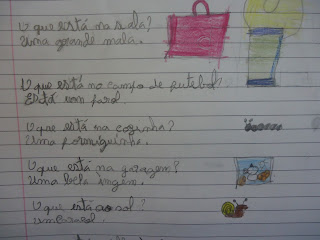 O que está na sala?
Uma grande mala.
O que está no campo de futebol?
Está um farol.
O que está na cozinha?
Uma formiguinha.
O que está na garagem?
Uma bela imagem.
O que está ao sol?
Um caracol.